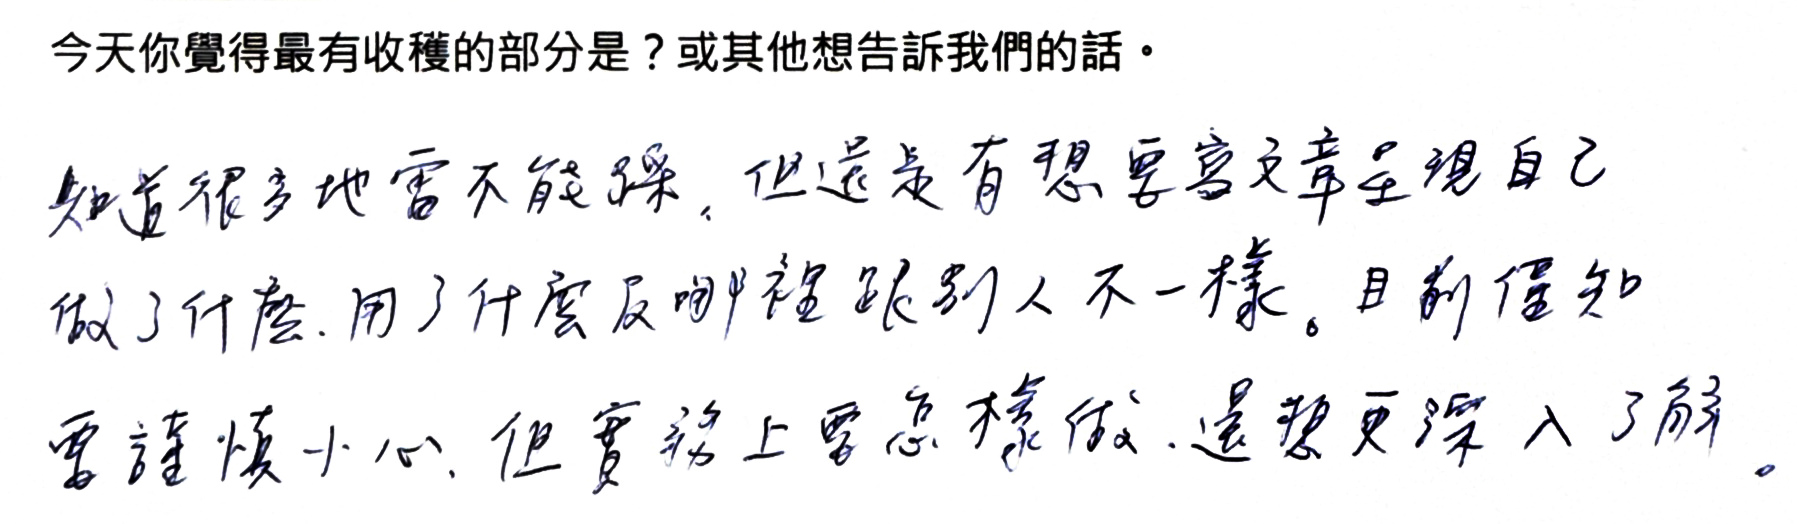 今天你覺得最有收穫的部分是？或其他想告訴我們的話。
知道很多地雷不能踩、但還是有想要寫文章呈現自己
做了什麼、用了什麼及哪裡跟別人不一樣。目前僅知
要謹慎小心、但實務上要怎樣做、還想更深入了解。